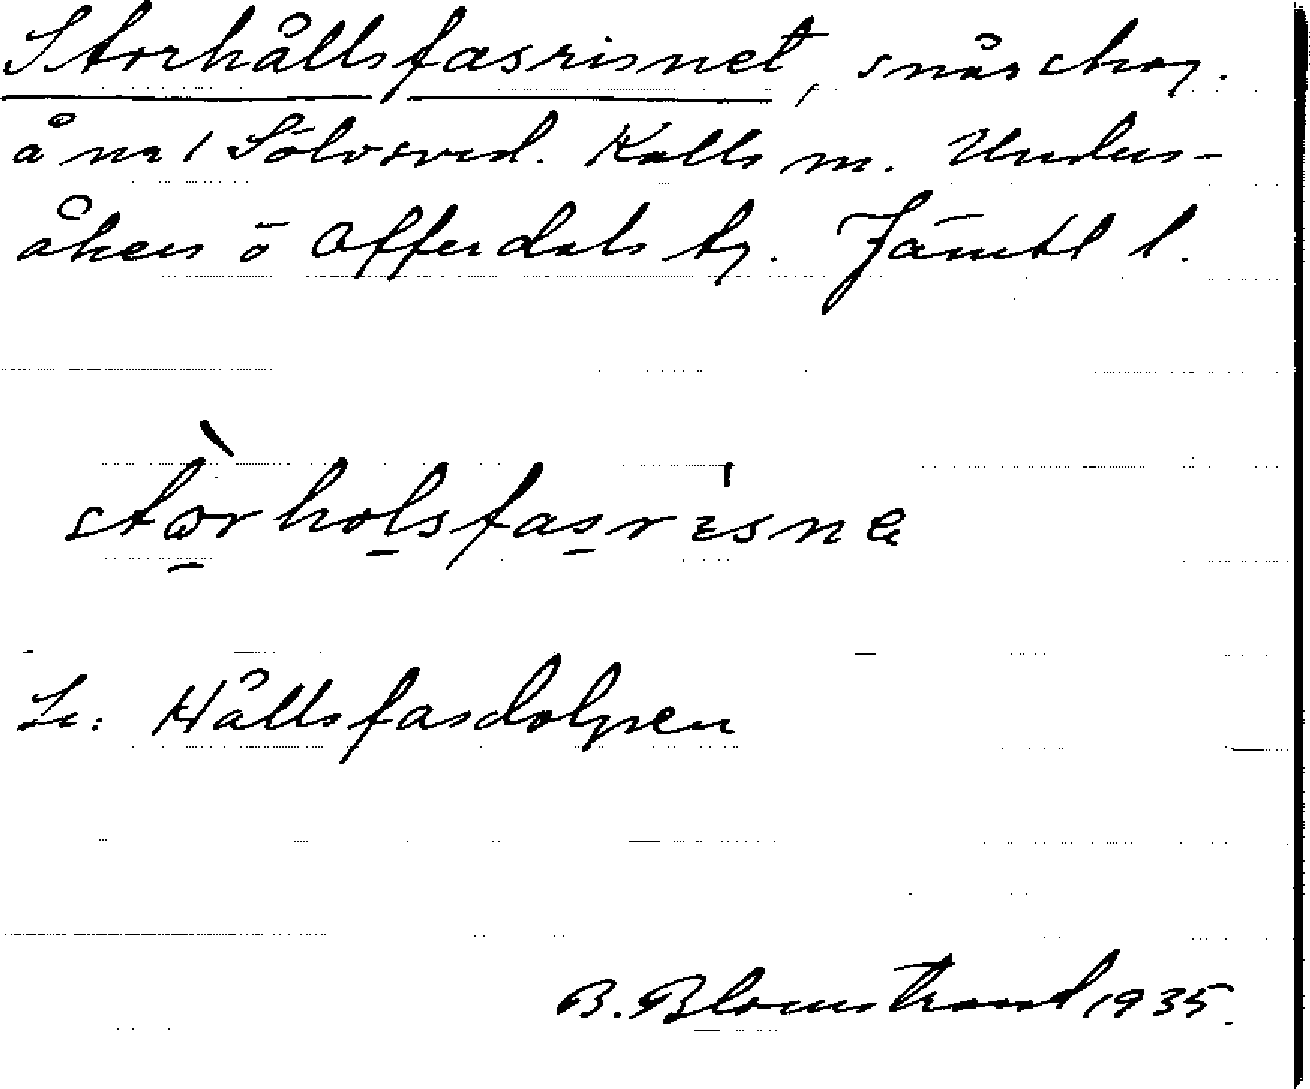 Storhållsfasrisnet, snårskog.
å nr 1 Sölvsved. Kalls sn. Unders-
åkers o Offerdals tg. Jämtl l.
stòrholsfasrisnɐ
Se: Hållsfasdolpen
B. Blomstrand 1935.